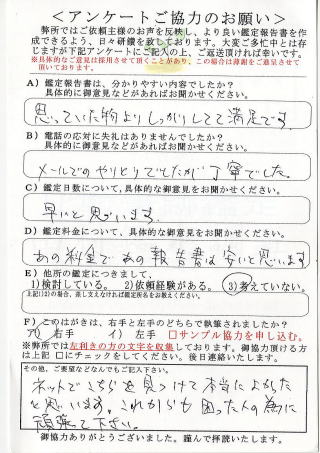 ＜アンケートご協力のお願い＞
弊所ではご依頼主様のお声を反映し、より良い鑑定報告書を作
成できるよう、日々研鑽を致しております。大変ご多忙中とは存
じますが下記アンケートにご記入の上、ご返送頂ければ幸いです。
※具体的なご意見は採用させて頂くことがあり、この場合は薄謝をご進呈させて
頂いております。
A）鑑定報告書は、分かりやすい内容でしたか？
具体的に御意見などがあればお聞かせください。
思っていた物よりしっかりしてて満足です。
B）電話の応対に失礼はありませんでしたか？
具体的に御意見などがあればお聞かせください。
メールでのやりとりでしたが丁寧でした。
C）鑑定日数について、具体的な御意見をお聞かせください。
早いと思います。
D）鑑定料金について、具体的な御意見をお聞かせください。
あの料金であの報告書は安いと思います
E）他所の鑑定につきまして、
1)検討している。 2)依頼経験がある。 3)考えていない。
上記1)2)の場合、差し支えなければ鑑定所名をお教えください。
F）このはがきは、右手と左手のどちらで執筆されましたか？
ア) 右手 イ) 左手 □サンプル協力を申し込む。
※弊所では左利きの方の文字を収集しております。御協力頂ける方
は上記□にチェックをしてください。後日連絡いたします。
その他、ご要望などなんでもご記入下さい。
ネットでこちらを見つけて本当によかった
と思います。これからも困った人の為に
頑張て下さい。
御協力ありがとうございました。謹んで拝読いたします。